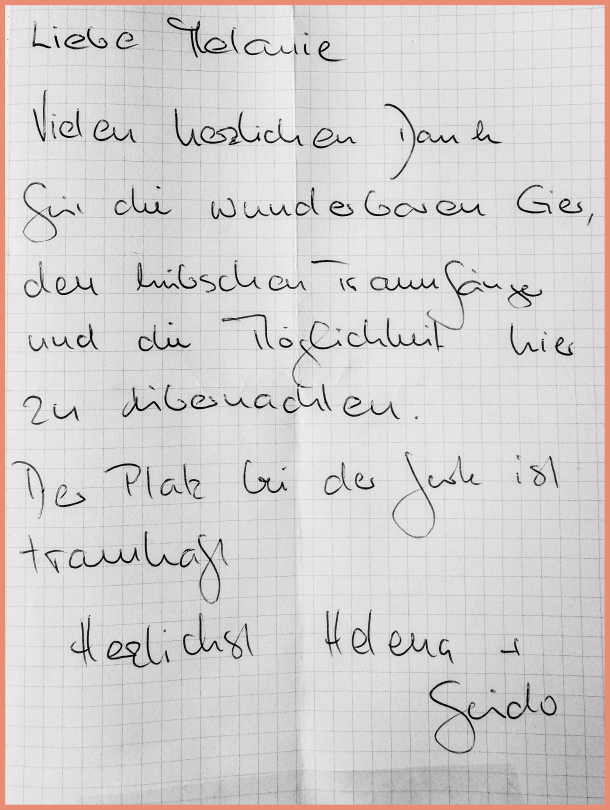 Liebe Melanie
Vielen herzlichen Dank
für die wunderbaren Eier,
den hübschen Traumfänger
und die Möglichkeit hier
zu übernachten.
Der Platz bei der Jurte ist
traumhaft
Herzlichst Helena +
Guido